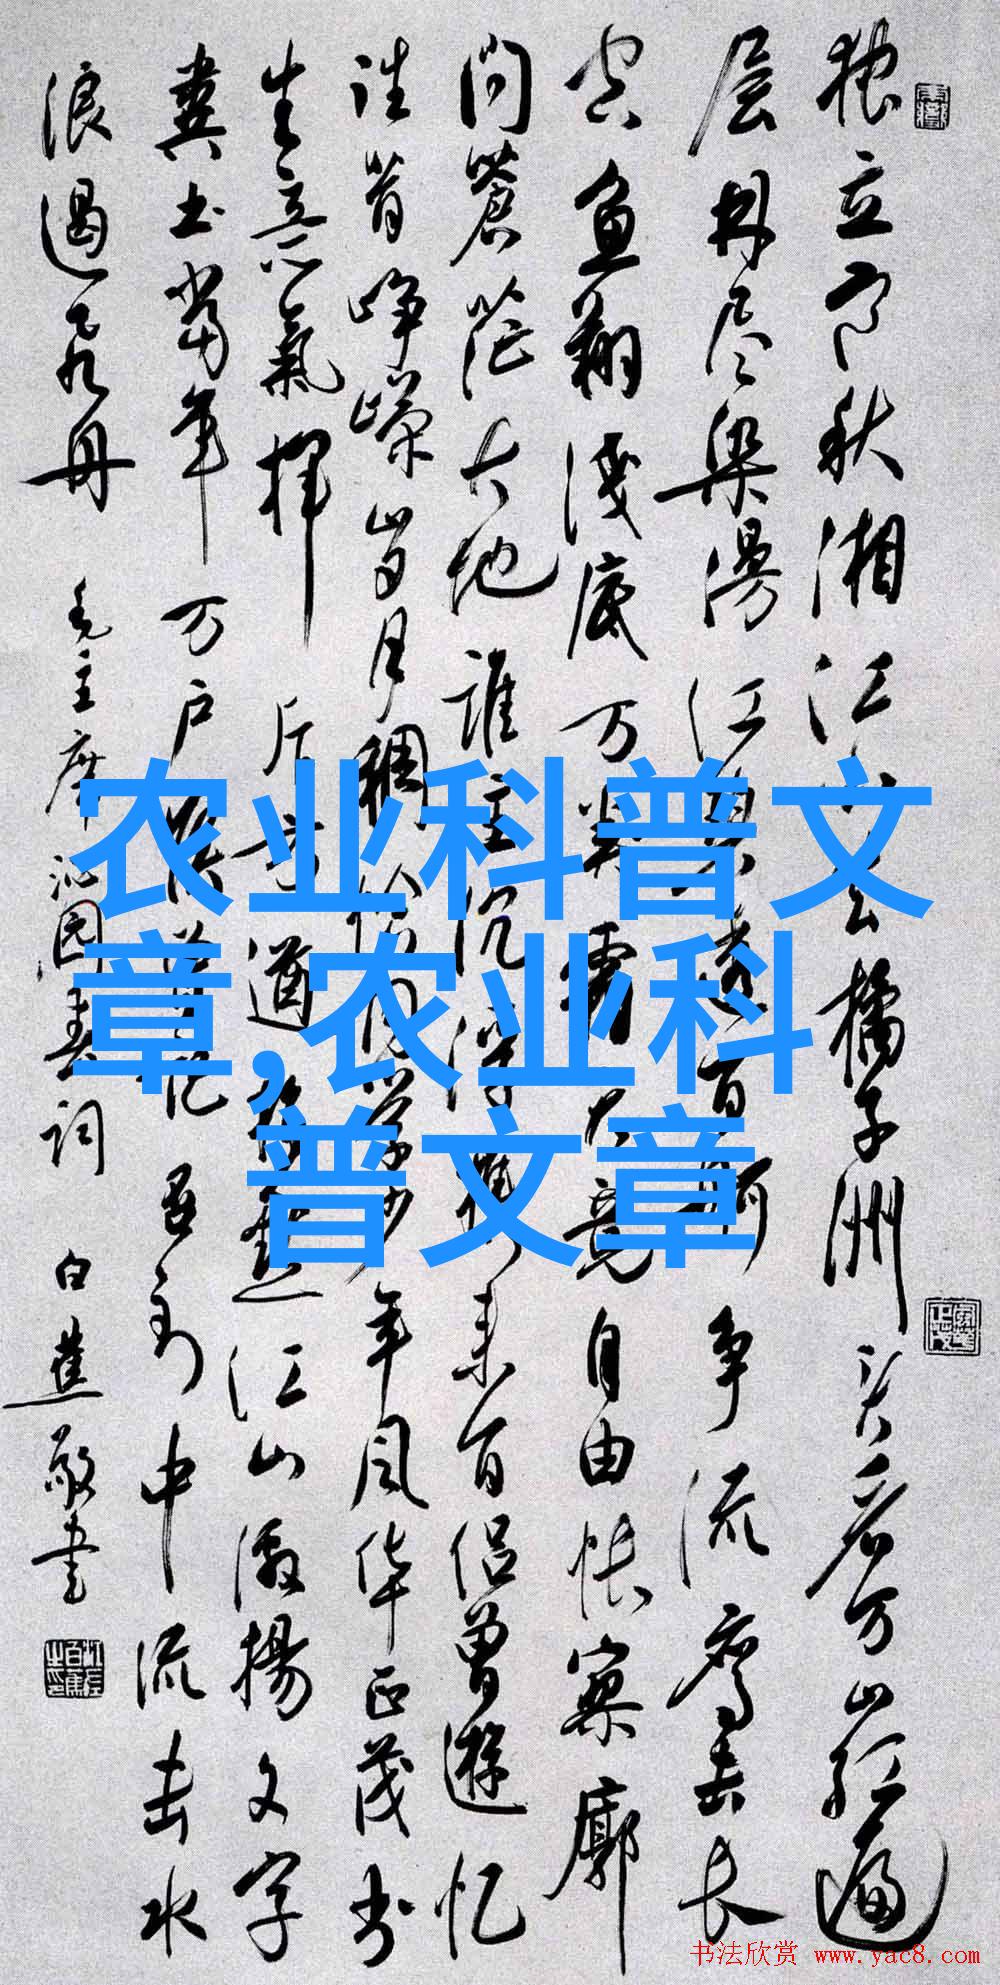 独立寒秋湘江去橘子洲头看万山红遍
层林尽染漫江碧透百舸争流鹰击长
空鱼翔浅底万类霜天竞自由怅寥廓
问蒼茫大地誰主沉浮携来百侣曾遊忆
往昔峥嵘岁月稠恰同学少年风华正茂书
生意氣挥斥方遒指点江山激揚文字
粪土当年万户侯曾记否到中流击水
浪遏飞舟 毛主席沁园春词 白蕉敬書
农业科普文
章,农业科
普文章
书法欣赏 www.yac8.com